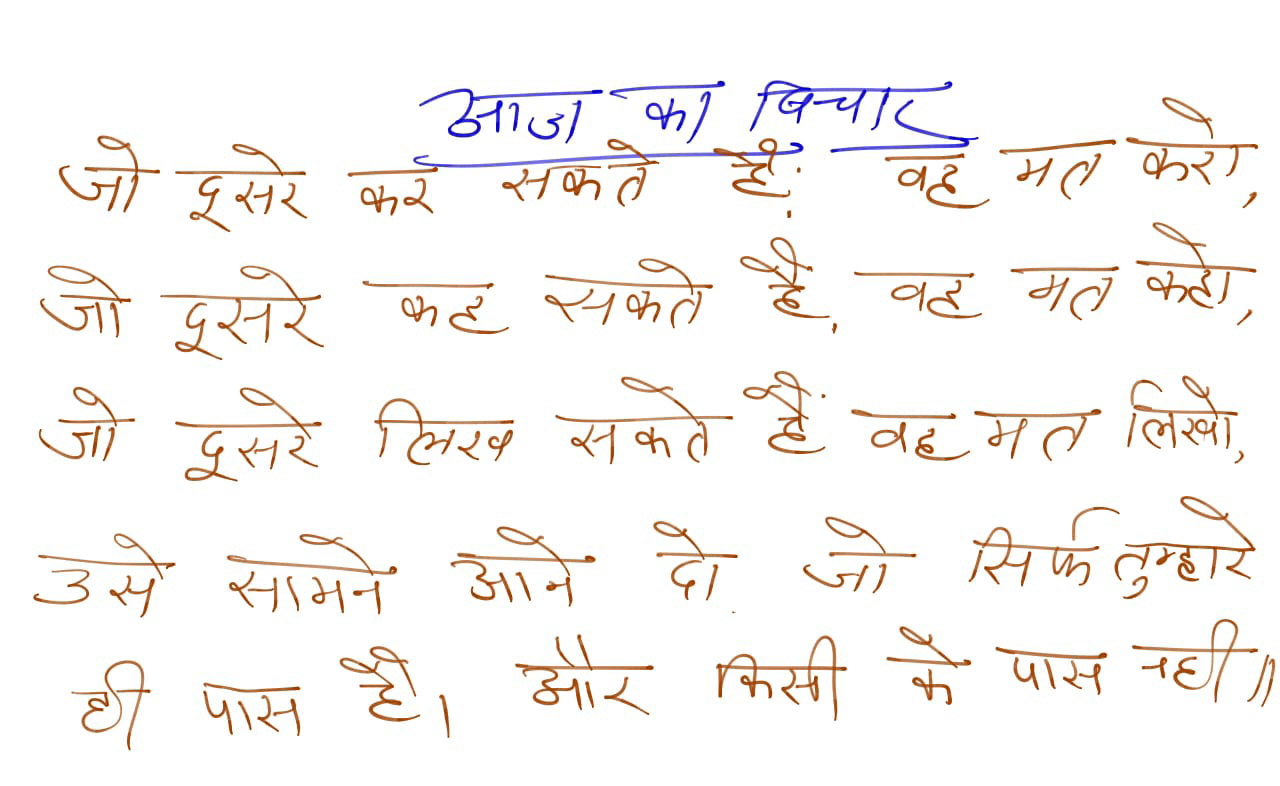 आज का विचार
जो दूसरे कर सकते हैं. वह मत करो,
जो दूसरे कह सकते हैं. वह मत कहो,
जो दूसरे लिख सकते हैं वह मत लिखो,
उसे सामने आने दो जो सिर्फ तुम्हारे
ही पास है। और किसी के पास नही॥